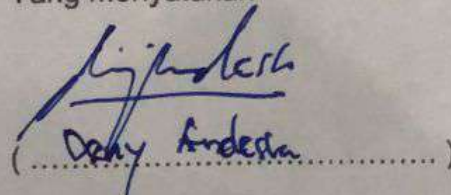 Yang menyatakan
( Deny Andesta )